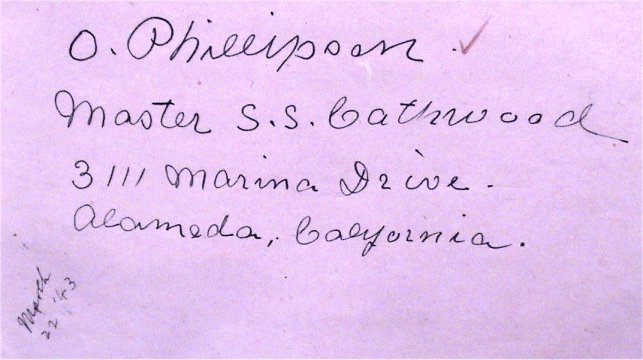 O. Phillipson
Master S.S. Cathwood
3111 Marina Drive.
Alameda, California.
March
22 '43